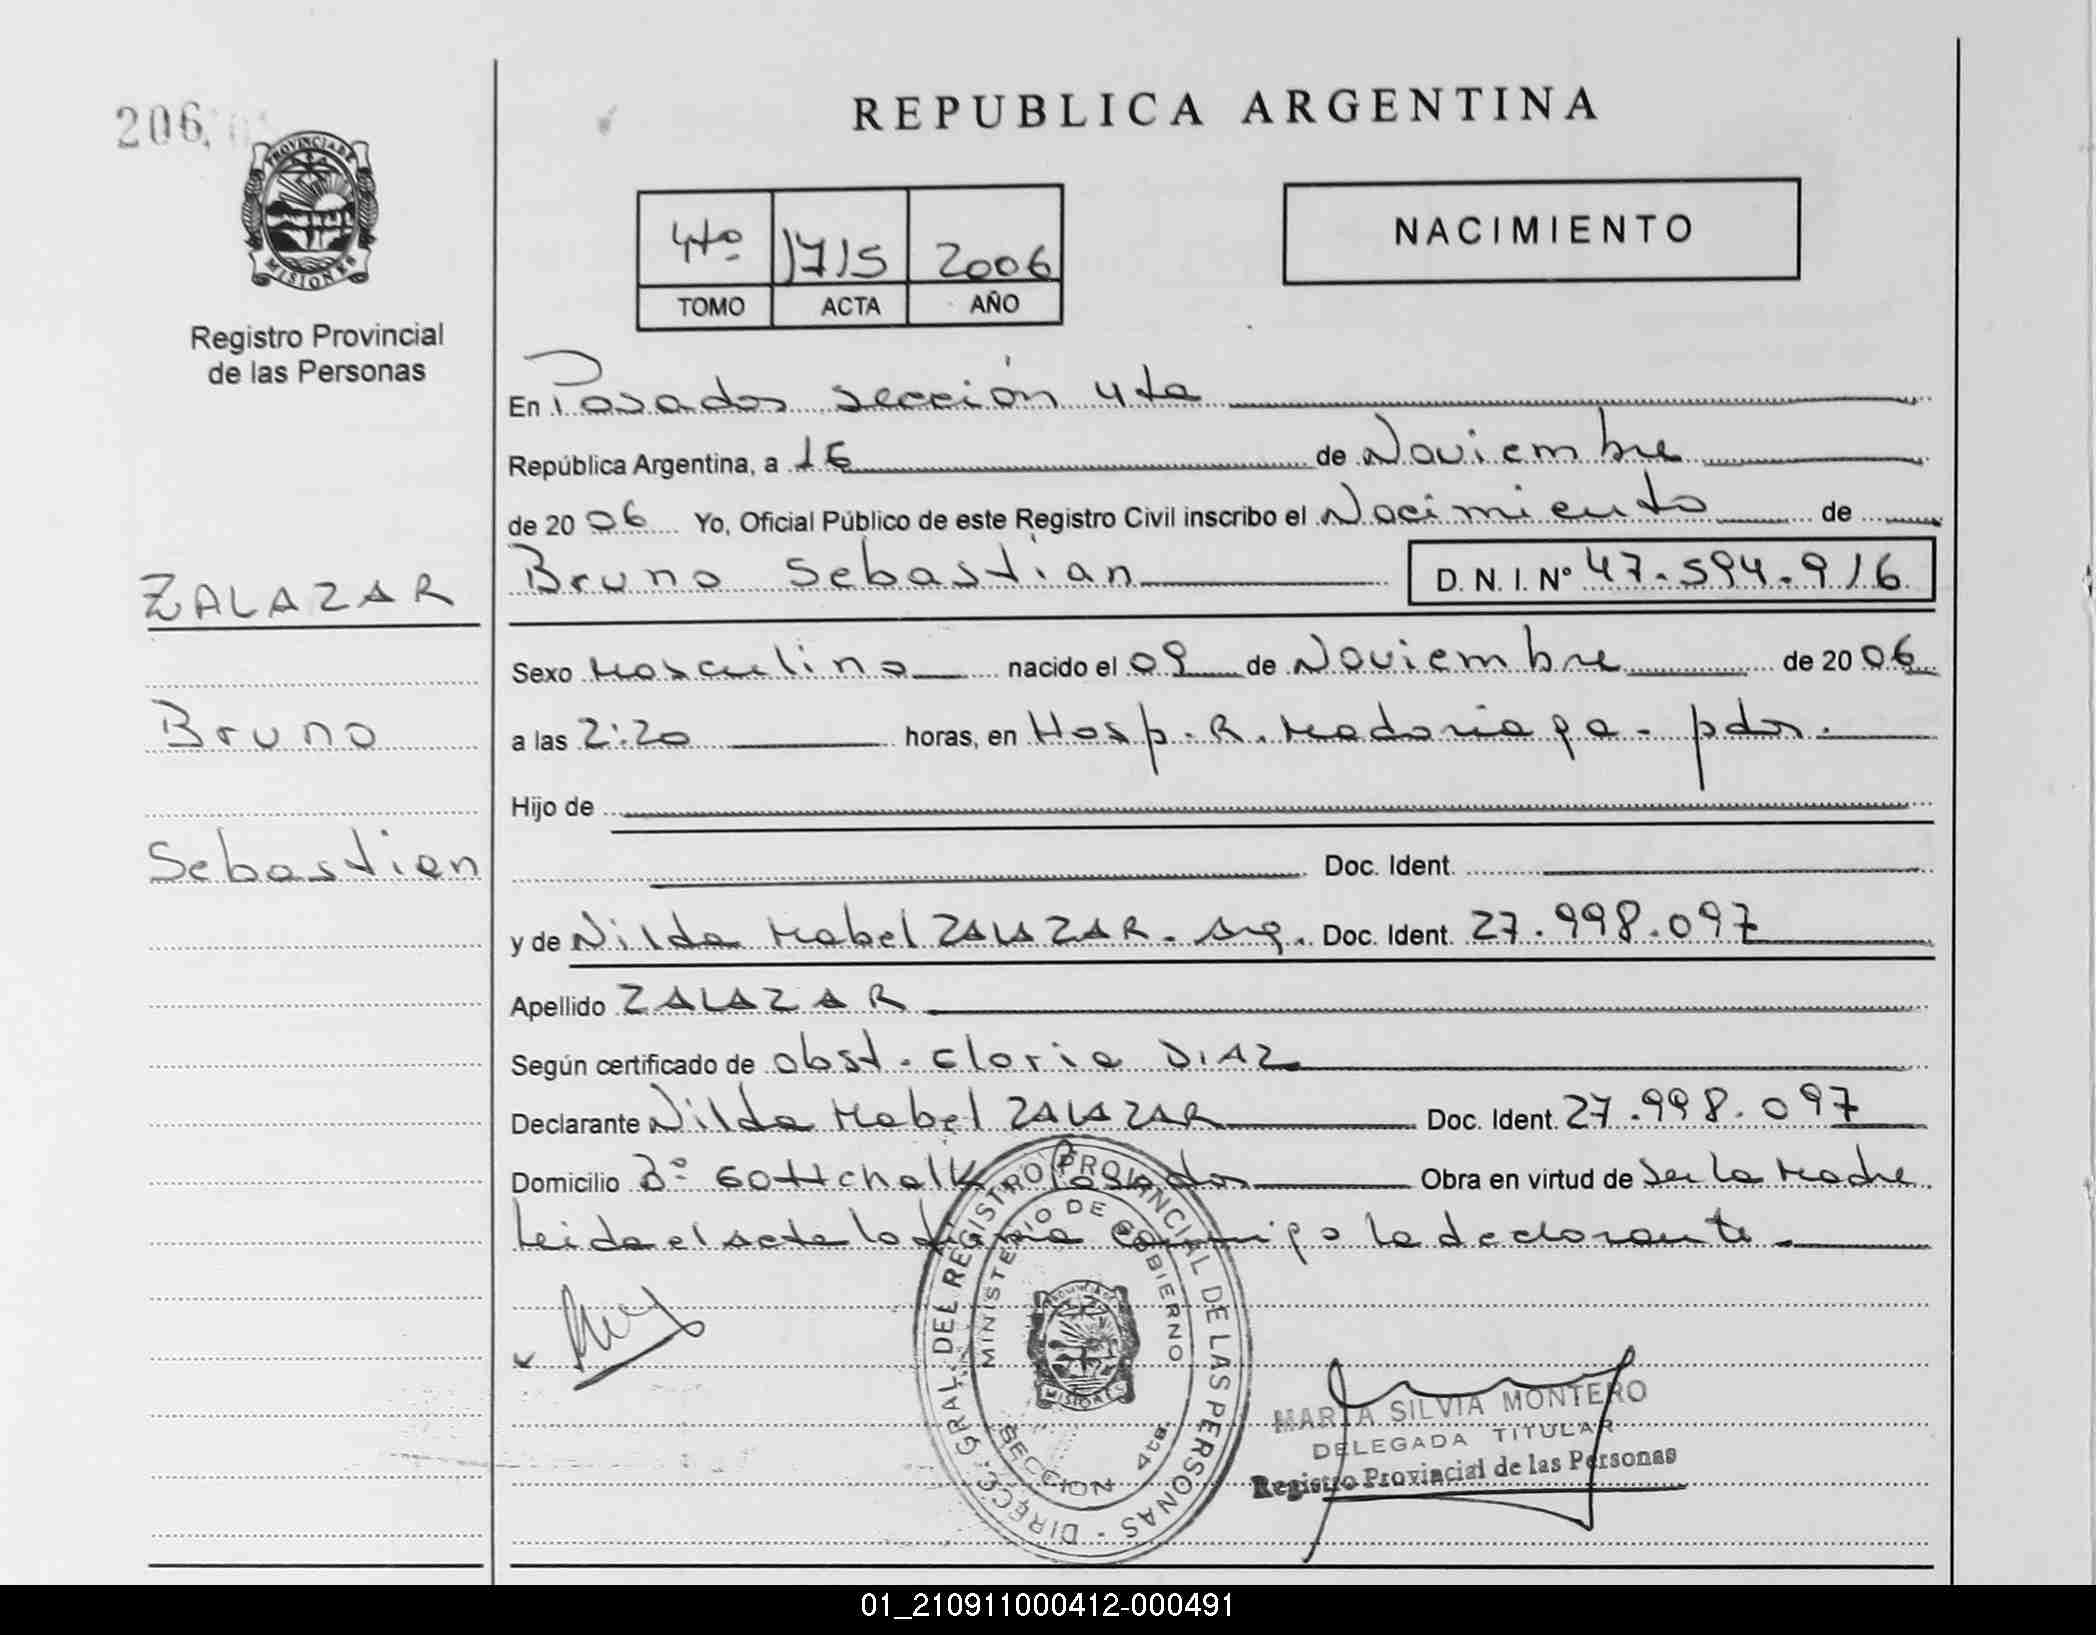 206
PROVINCIA DE
MISIONES
Registro Provincial
de las Personas
REPUBLICA ARGENTINA
4to 1715 2006
TOMO ACTA AÑO
NACIMIENTO
En Posadas sección 4ta
República Argentina, a 16 de Noviembre
de 2006 Yo, Oficial Público de este Registro Civil inscribo el Nacimiento de
Bruno Sebastian D.N.I. Nº 47.594.916
ZALAZAR
Bruno
Sebastian
Sexo Masculino nacido el 09 de Noviembre de 2006
a las 2:20 horas, en Hosp. R. Madariaga - pdas.
Hijo de
Doc. Ident.
y de Nilda Mabel ZALAZAR - Arg. Doc. Ident. 27.998.097
Apellido ZALAZAR
Según certificado de obst. Gloria DIAZ
Declarante Nilda Mabel ZALAZAR Doc. Ident. 27.998.097
Domicilio Bº Gottchalk Posadas Obra en virtud de Ser la Madre
Leida el acta la firma conmigo la declarante
DIRECC. GRAL. DEL REGISTRO PROVINCIAL DE LAS PERSONAS
MINISTERIO DE GOBIERNO
MISIONES
SECCION 4ta.
MARIA SILVIA MONTERO
DELEGADA TITULAR
Registro Provincial de las Personas
01_210911000412-000491